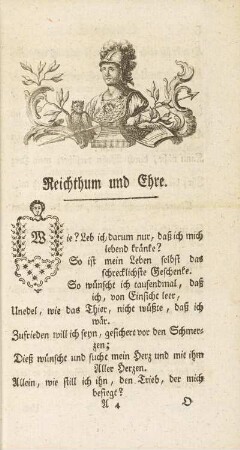 Reichthum und Ehre.
Wie? Leb ich, darum nur, daß ich mich
lebend kränke?
So ist mein Leben selbst das
schrecklichste Geschenke.
So wünscht ich tausendmal, daß
ich, von Einsicht leer,
Unedel, wie das Thier, nicht wüßte, daß ich
wär.
Zufrieden will ich seyn, gesichert vor den Schmer-
zen;
Dieß wünscht und sucht mein Herz und mit ihm
Aller Herzen.
Allein, wie still ich ihn, den Trieb, der mich
besiegt?
A 4
O